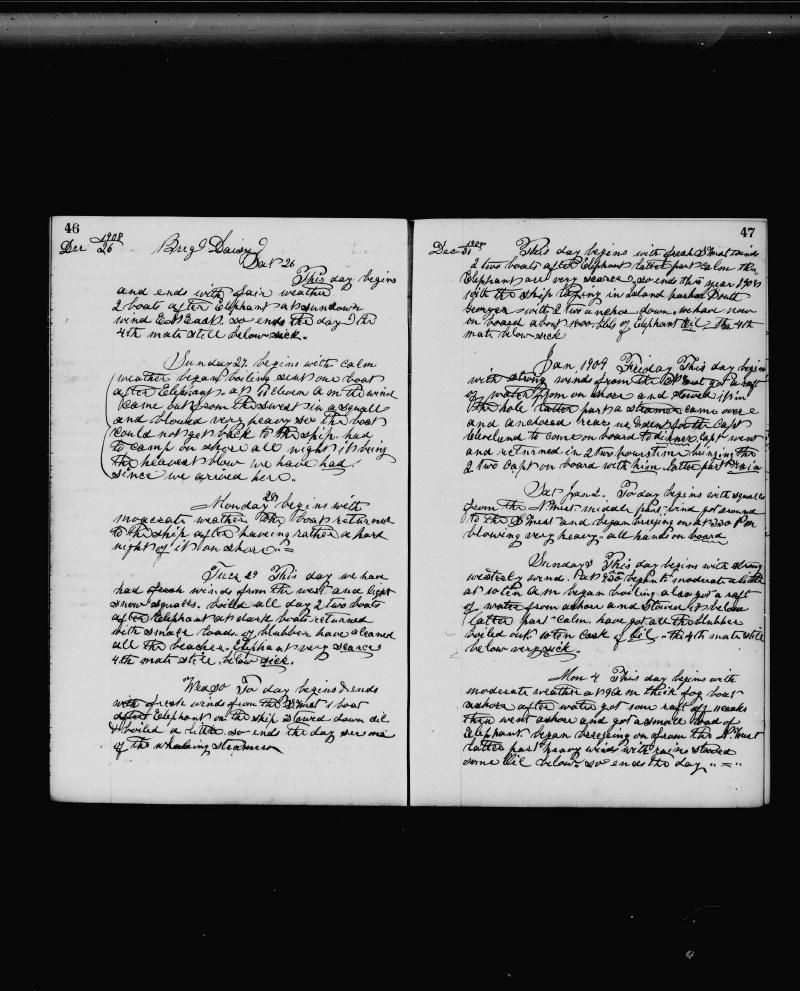 46
Dec 1908
26
Brig Daisy
Sat 26
This day begins
and ends with fair weather
2 boats after Elephant at sundown
wind E N East. so ends the day the
4th mate still below sick.
Sunday 27. begins with calm
weather began boiling sent one boat
after Elephant. at Eleven A m the wind
came out from the S west in a squall
and blowed very heavy so the boat
could not get back to the ship had
to camp on shore all night it being
the heaviest blow we have had
since we arrived here.
Monday 28 begins with
moderate weather the boat returned
to the ship after having rather a hard
night of it on shore.. =
Tues 29 This day we have
had fresh winds from the west and light
snow squalls. boild all day 2 two boats
after Elephant at dark boats returned
with small loads of blubber have cleaned
all the beaches. Elephant very scarce
4th mate still below sick.
Wed 30 To day begins & ends
with fresh winds from the S West 1 boat
after Elephant on the ship stowed down oil
& boiled a little so ends the day see one
of the whaling steamers
47
Dec 1908
31
This day begins with fresh S West winds
2 two boats after Elephant latter part calm the
Elephant are very scarce, so ends this year 1908
with the ship laying in Island harbor South
Georgia with 2 two anchors down. we have now
on board about 1100 bbls of Elephant Oil. The 4th
mate below sick
Jan 1909 Friday This day begins
with strong winds from the S West got a raft
of water from on shore and stowed it in
the hole latter part a steamer came over
and anchored near us & sent for the Capt
Cleveland to come on board to dinner. Capt went
and returned in 2 two hours time bringing the
2 two Capt on board with him latter part rain
Sat Jan 2. To day begins with squalls
from the N West middle part wind got around
to the S West and began breezing on at 2.30 P m
blowing very heavy.. all hands on board
Sunday 3 This day begins with strong
westerly wind. at 9 30 began to moderate a little
at 10 ten A m began boiling also got a raft
of water from ashore and stowed it below
latter part calm have got all the blubber
boiled out. 10 ten cask of Oil .. the 4th mate still
below very sick.
Mon 4 This day begins with
moderate weather at 9 A m thick fog boat
ashore after water got some raft of casks
then went ashore and got a small load of
Elephant. began breezing on from the N. West
latter part heavy winds with rain stowed
some Oil below. so ends the day .. = ..